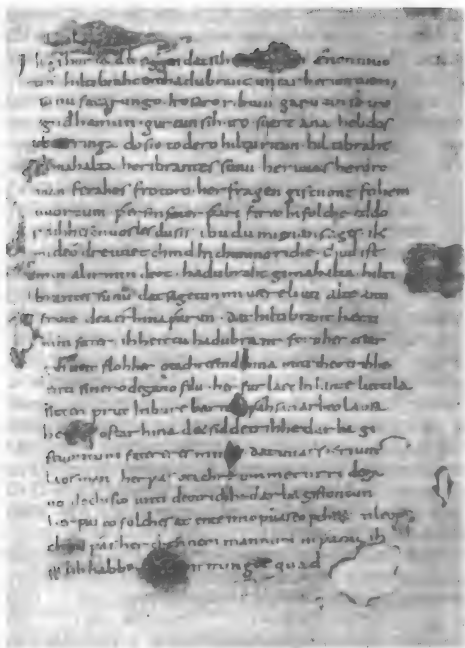 Ik gihorta dat seggen dat sih ænon muo
tin · hiltibraht enti hadubrant untar heriun tuem ·
sunu fatarungo · iro saro rihtun garutun se iro
gudhamun · gurtun sih · iro · suert ana · helidos
ringa do sie to dero hiltu ritun · hiltibraht
gimahalta heribrantes sunu · her uuas heroro
man ferahes frotoro · her fragen gistuont fohem
uuortum · ƿer sin fater ƿari fireo In folche eddo
ƿelihhes cnuosles du sis · ibu du mi ęnan sages · ik
mi deo dre uuet chind In chunincriche · chud ist
min al irmindeot · hadubraht gimahalta hilti
brantes sunu dat sagetun mi usere liuti alte anti
frote dea erhina ƿarun · dat hiltibrant hætti
min fater · ih heittu hadubrant · forn her ostar
gihueit floh her otachres nid hina miti theotrihhe
enti sinero degano filu · her furlaet In lante luttila
sitten prut In bure barn unƿahsan arbeo laosa ·
ostar hina det sid detrihhe darba gi
stuontum fatereres mines · dat uuas so friunt
laos man her ƿas otachre ummet tirri dega
no dechisto unti deotrichhe darba gistontun
her ƿas eo folches at ente imo ƿuas eo feheta ti leop ·
chud ƿas her chonnem mannum ni ƿaniu ih
iu lib habbe irmingot quad